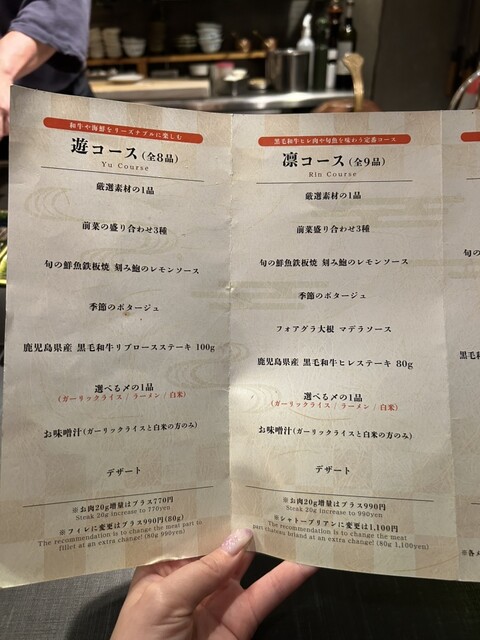 和牛や海鮮をリーズナブルに楽しむ
遊コース(全8品)
Yu Course
厳選素材の1品
前菜の盛り合わせ3種
旬の鮮魚鉄板焼 刻み鮑のレモンソース
季節のポタージュ
鹿児島県産 黒毛和牛リブロースステーキ 100g
選べる〆の1品
(ガーリックライス / ラーメン / 白米)
お味噌汁(ガーリックライスと白米の方のみ)
デザート
※お肉20g増量はプラス770円
Steak 20g increase to 770yen
※フィレに変更はプラス990円(80g)
The recommendation is to change the meat part to
fillet at an extra change! (80g 990yen)
黒毛和牛ヒレ肉や旬魚を味わう定番コース
凛コース(全9品)
Rin Course
厳選素材の1品
前菜の盛り合わせ3種
旬の鮮魚鉄板焼 刻み鮑のレモンソース
季節のポタージュ
フォアグラ大根 マデラソース
鹿児島県産 黒毛和牛ヒレステーキ 80g
選べる〆の1品
(ガーリックライス / ラーメン / 白米)
お味噌汁(ガーリックライスと白米の方のみ)
デザート
※お肉20g増量はプラス990円
Steak 20g increase to 990yen
※シャトーブリアンに変更は1,100円
The recommendation is to change the meat
part chateau briand at an extra change! (80g 1,100yen)
旬の
黒毛
※各メ